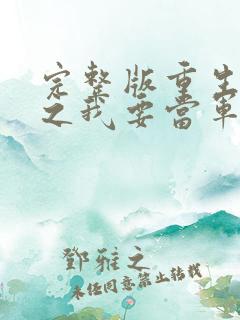 完整版重生
之我要当军
鄧雅之
未经同意禁止转载